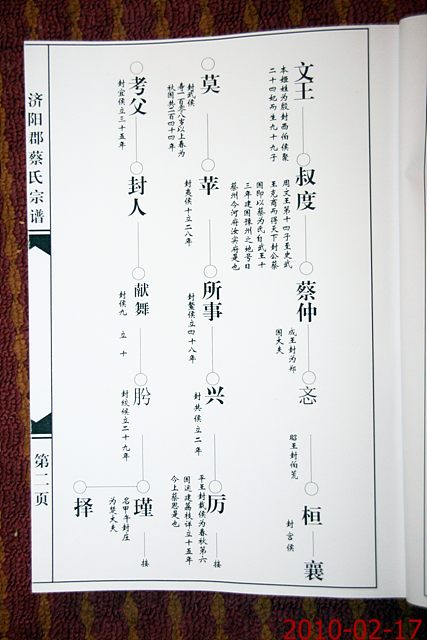 文王
本姬姓为殷封西伯侯聚
二十四妃而生九十九子
叔度
周文王第十四子至史武
王克商而得天下封公蔡
国即以蔡为氏自武王十
三年建国豫州之地号曰
蔡州今河府汝实府是也
蔡仲
成王封为郑
国大夫
忞
昭王封伯荒
桓
封宫侯
襄
莫
封武侯
寿一百零八岁以上春为
秋国共二百四十四年
苹
封夷侯十立二八年
所事
封釐侯立四十八年
兴
封共侯立二年
厉
平王封戴侯为春秋第六
国运建荔枝详立十五年
今上蔡恩是也
接
考父
封宣侯立三十五年
封人
献舞
封侯九 立 十
肹
封绞侯立二十九年
瑾
名甲午封庄
为楚大夫
接
择
济阳郡蔡氏宗谱
第二页
2010-02-17